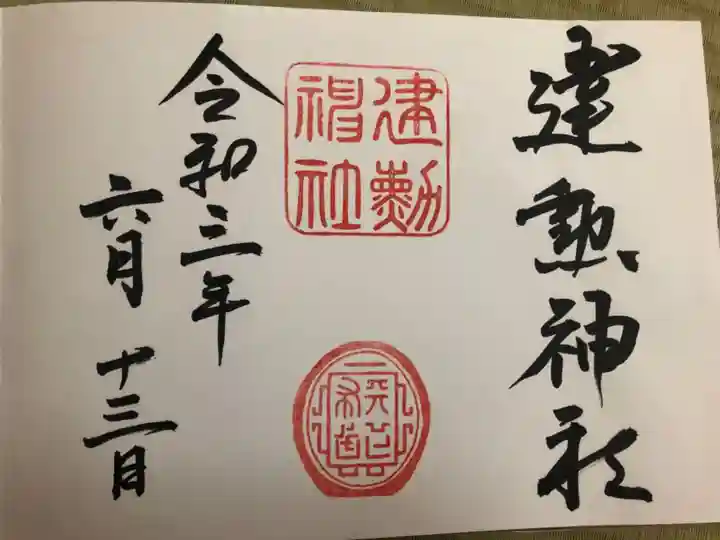 建勲神社
建勲
神社
令和三年
六月十三日